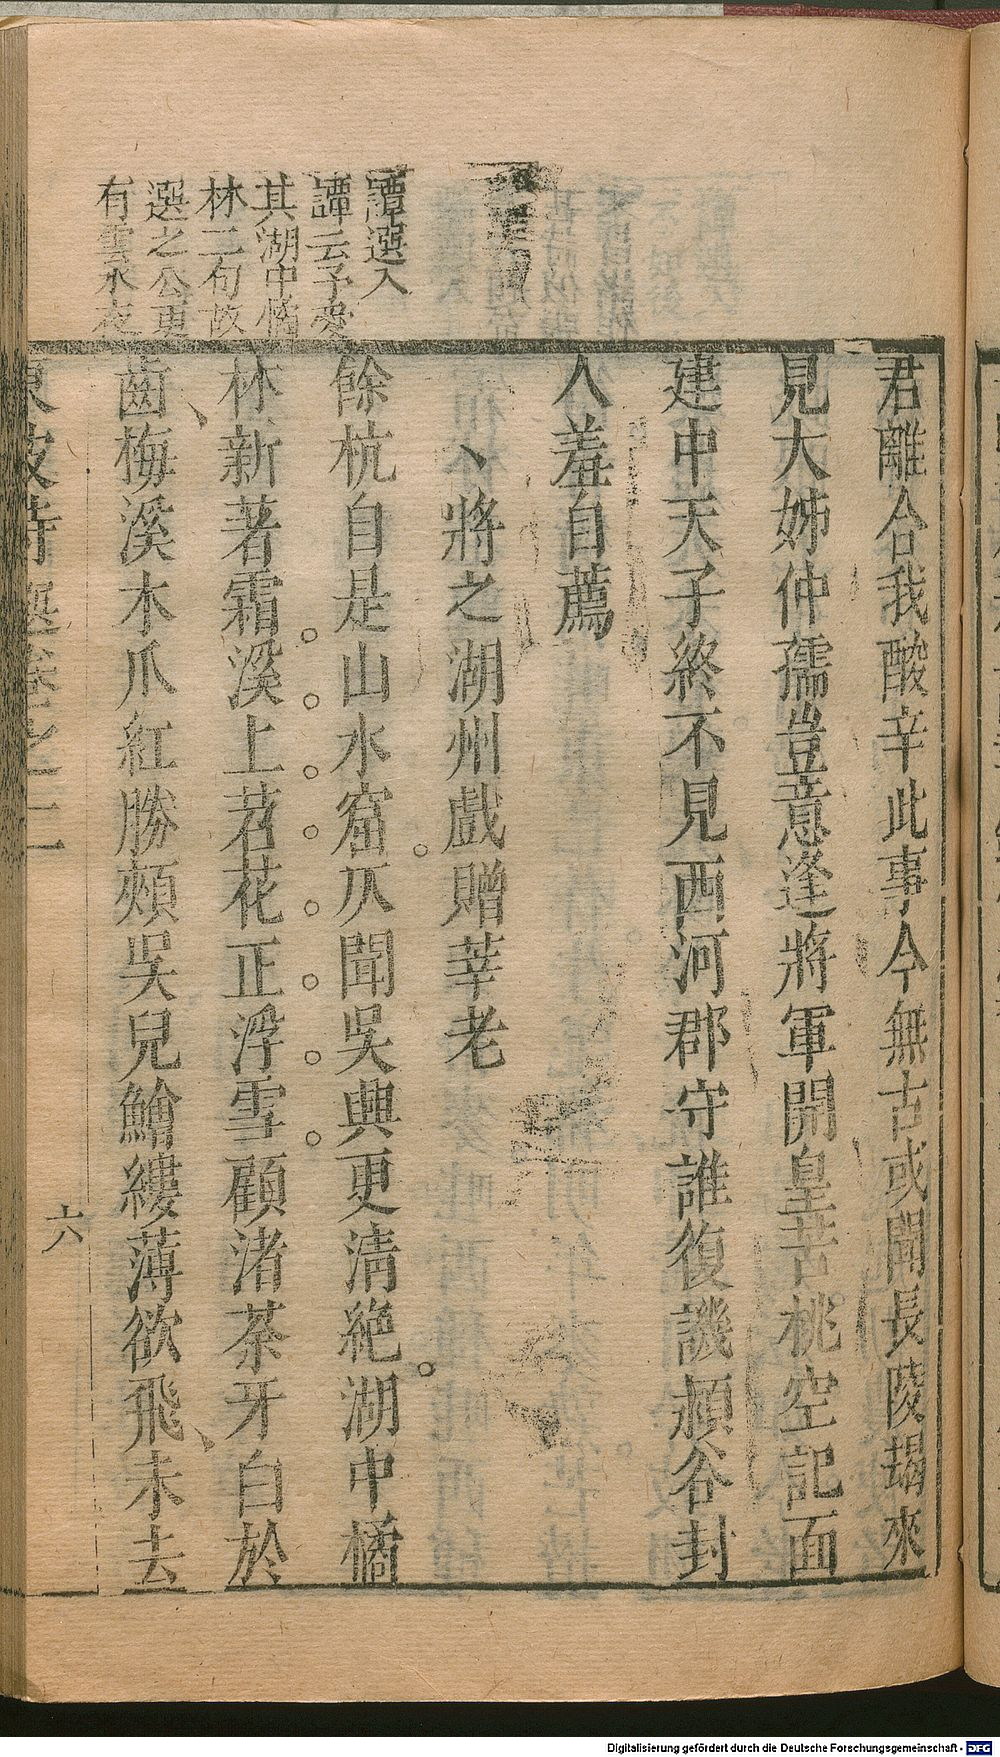 君離合我酸辛此事今無古或聞長陵朅來
見大姊仲孺豈意逢將軍開皇苦桃空記面
建中天子終不見西河郡守誰復譏潁谷封
人羞自薦
將之湖州戲贈莘老
餘杭自是山水窟仄聞吳興更淸絶湖中橘
林新著霜溪上苕花正浮雪顧渚茶牙白於
齒梅溪木瓜紅勝頰吳兒鱠縷薄欲飛未去
譚選入
譚云予愛
其湖中橘
林二句故
選之公更
有雲水夜
東坡詩選卷之二
六
Digitalisierung gefördert durch die Deutsche Forschungsgemeinschaft - DFG